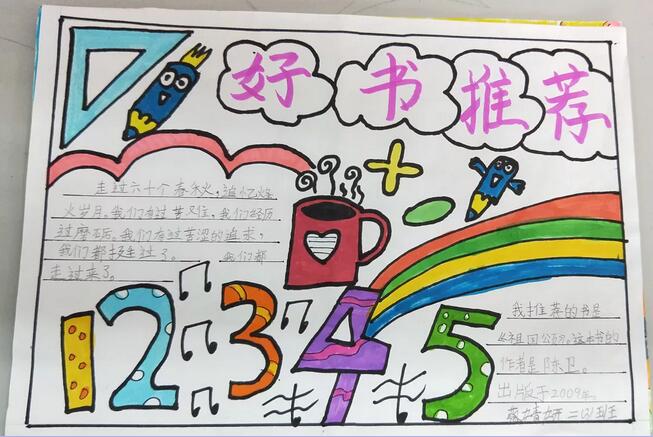 好书推荐
走过六十个春秋，追忆烽
火岁月。我们有过苦
，我们经历
过磨石。我们有过苦涩的追求，
我们都
走过了。我们都
走过来了。
12345
我推荐的书是
《祖国
》。这本书的
作者是陈卫。
出版于2009年。
二(3)班